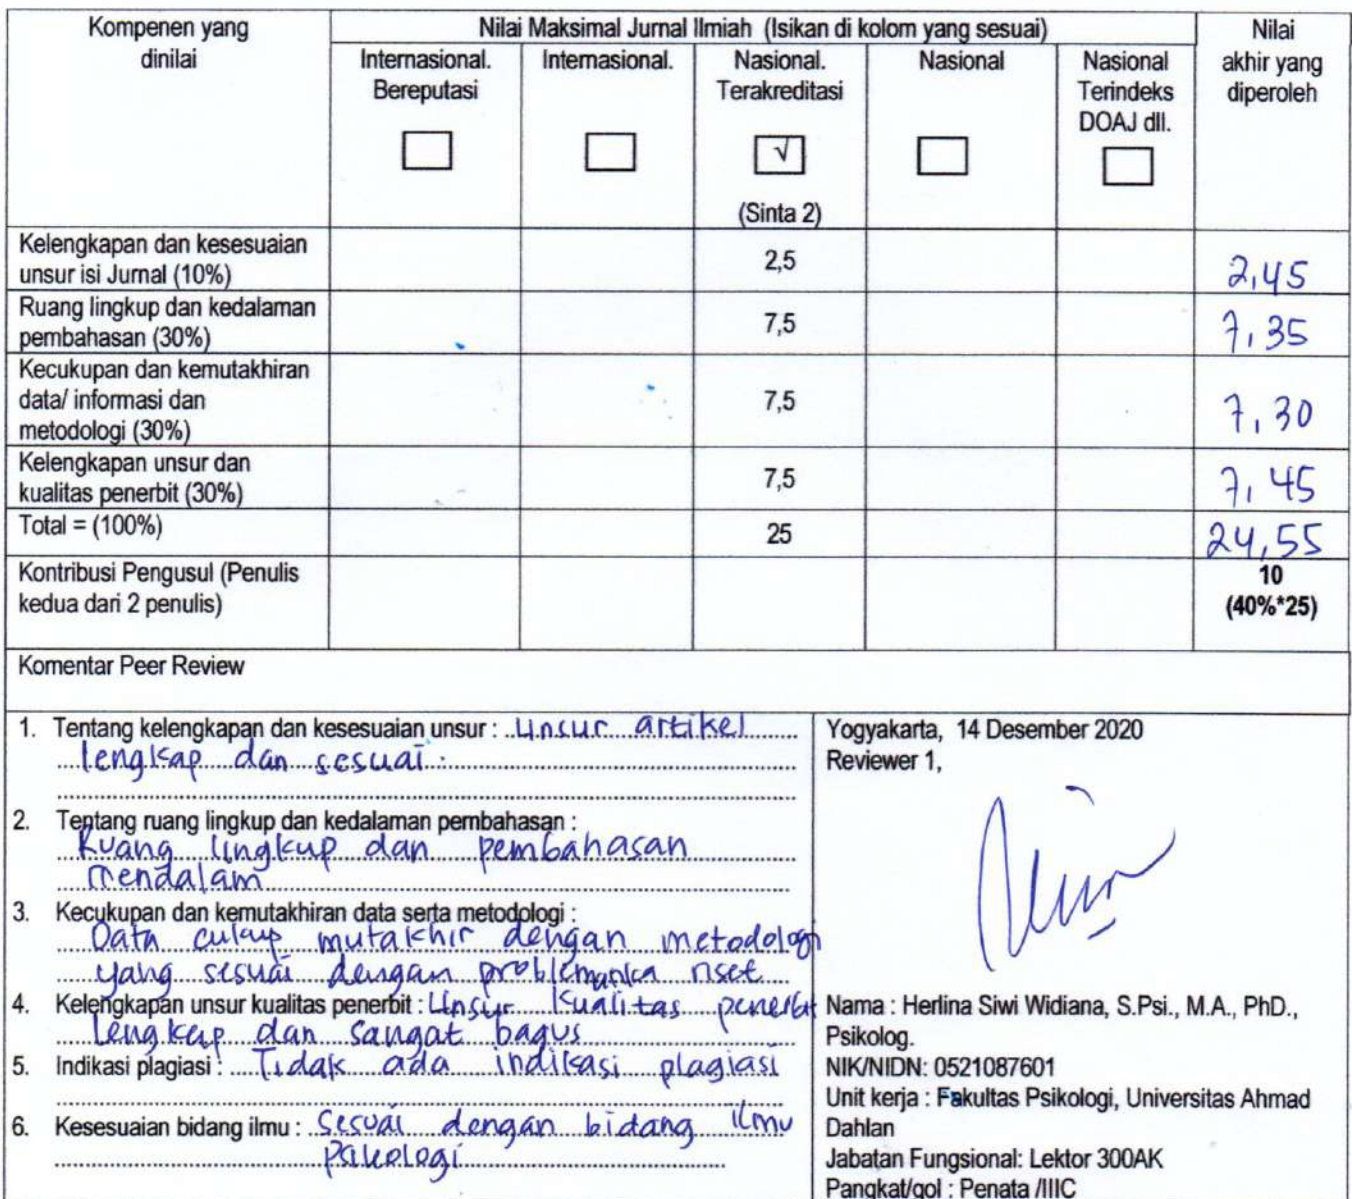 Kompenen yang
dinilai
Nilai Maksimal Jurnal Ilmiah (Isikan di kolom yang sesuai)
Nilai
akhir yang
diperoleh
Internasional.
Bereputasi
Internasional.
Nasional.
Terakreditasi
√
(Sinta 2)
Nasional
Nasional
Terindeks
DOAJ dll.
Kelengkapan dan kesesuaian
unsur isi Jurnal (10%)
2,5
2,45
Ruang lingkup dan kedalaman
pembahasan (30%)
7,5
7,35
Kecukupan dan kemutakhiran
data/ informasi dan
metodologi (30%)
7,5
7,30
Kelengkapan unsur dan
kualitas penerbit (30%)
7,5
7,45
Total = (100%)
25
24,55
Kontribusi Pengusul (Penulis
kedua dari 2 penulis)
10
(40%*25)
Komentar Peer Review
1. Tentang kelengkapan dan kesesuaian unsur : Unsur artikel
lengkap dan sesuai.
2. Tentang ruang lingkup dan kedalaman pembahasan :
Ruang lingkup dan pembahasan
mendalam
3. Kecukupan dan kemutakhiran data serta metodologi :
Data cukup mutakhir dengan metodologi
yang sesuai dengan problematika riset
4. Kelengkapan unsur kualitas penerbit : Unsur kualitas penerbit
lengkap dan sangat bagus
5. Indikasi plagiasi : Tidak ada indikasi plagiasi
6. Kesesuaian bidang ilmu : Sesuai dengan bidang ilmu
psikologi
Yogyakarta, 14 Desember 2020
Reviewer 1,
Nama : Herlina Siwi Widiana, S.Psi., M.A., PhD.,
Psikolog.
NIK/NIDN: 0521087601
Unit kerja : Fakultas Psikologi, Universitas Ahmad
Dahlan
Jabatan Fungsional: Lektor 300AK
Pangkat/gol : Penata /IIIC